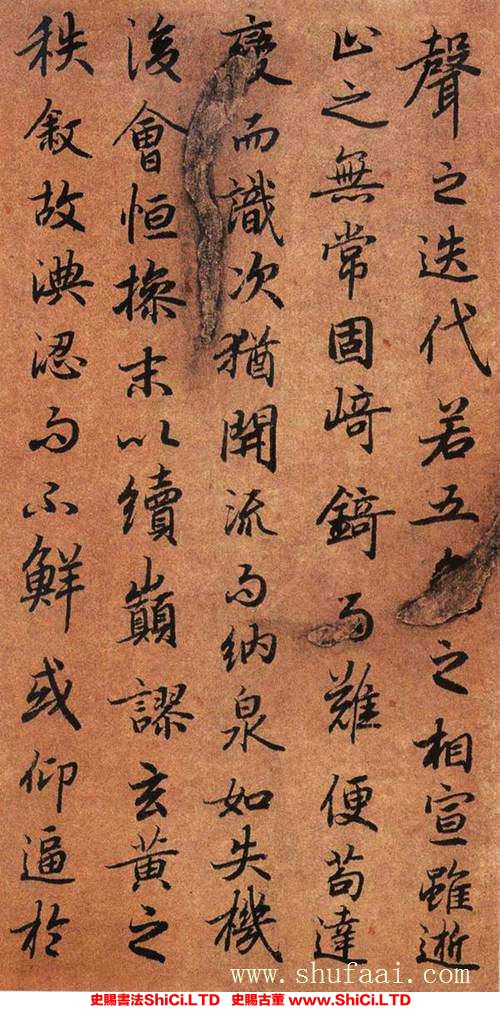 聲之迭代若五之相宣雖逝
止之無常固崎錡而難便苟達
變而識次猶開流而納泉如失機
後會恒操末以續巔謬玄黃之
秩敘故淟涊而不鮮或仰逼於
www.shufaai.com
史賜書法ShiCi.LTD 史賜古董 www.ShiCi.LTD